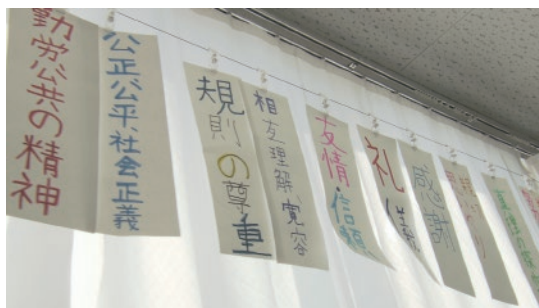 勤労公共の精神
公正公平、社会正義
規則の尊重
相互理解、寛容
友情・信頼
礼儀
感謝